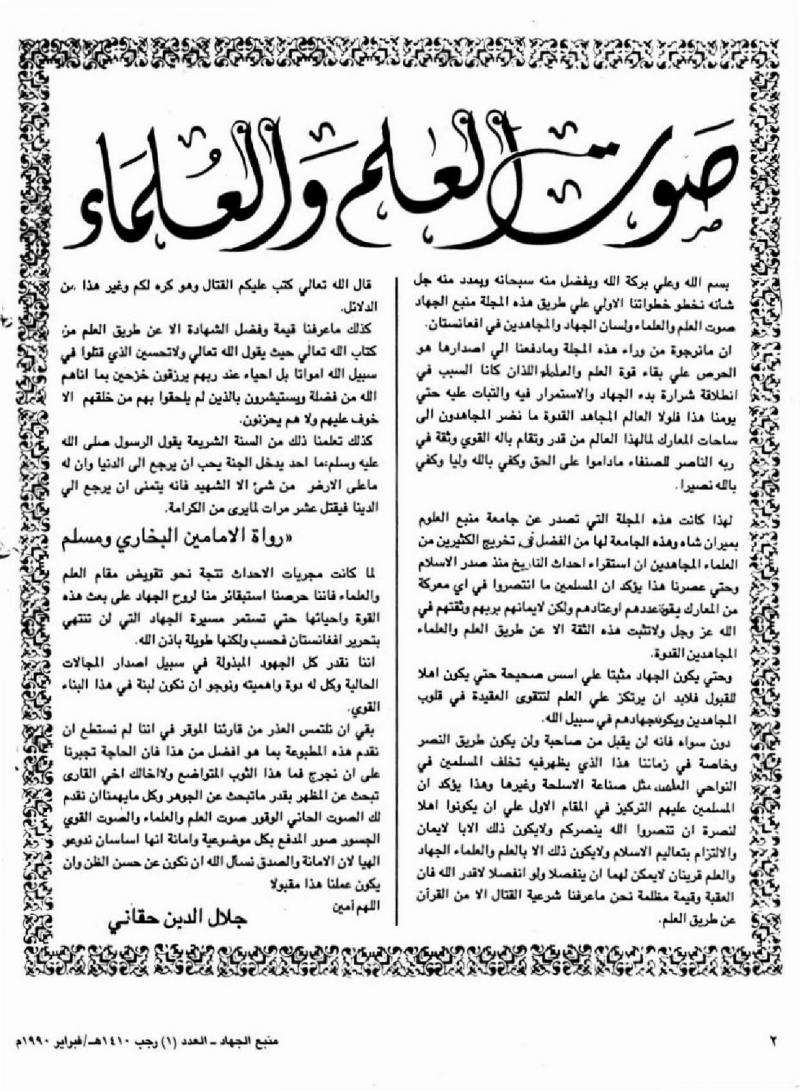 صوت العلم والعلماء
بسم الله وعلي بركة الله وبفضل منه سبحانه وبمدد منه جل
شأنه نخطو خطواتنا الاولي علي طريق هذه المجلة منبع الجهاد
صوت العلم والعلماء ولسان الجهاد والمجاهدين في افغانستان.
ان مانرجوة من وراء هذه المجلة ومادفعنا الي اصدارها هو
الحرص علي بقاء قوة العلم والعلماء اللذان كانا السبب في
انطلاقة شرارة بدء الجهاد والاستمرار فيه والثبات عليه حتي
يومنا هذا فلولا العالم المجاهد القدوة ما نضر المجاهدون الى
ساحات المعارك لمالهذا العالم من قدر وتقام باله القوي وثقة في
ربه الناصر للصنفاء ماداموا على الحق وكفي بالله وليا وكفي
بالله نصيرا.
لهذا كانت هذه المجلة التي تصدر عن جامعة منبع العلوم
بميران شاه وهذه الجامعة لها من الفضل في تخريج الكثيرين من
العلماء المجاهدين ان استقراء احداث التاريخ منذ صدر الاسلام
وحتي عصرنا هذا يؤكد ان المسلمين ما انتصروا في اي معركة
من المعارك بقوة عددهم اوعتادهم ولكن لايمانهم بربهم وثقتهم في
الله عز وجل ولاتثبت هذه الثقة الا عن طريق العلم والعلماء
المجاهدين القدوة.
وحتي يكون الجهاد مثبتا علي اسس صحيحة حتي يكون اهلا
للقبول فلابد ان يرتكز علي العلم لتتقوى العقيدة في قلوب
المجاهدين ويكون جهادهم في سبيل الله.
دون سواه فانه لن يقبل من صاحبة ولن يكون طريق النصر
وخاصة في زماننا هذا الذي يظهرفيه تخلف المسلمين في
النواحي العلمية مثل صناعة الاسلحة وغيرها وهذا يؤكد ان
المسلمين عليهم التركيز في المقام الاول علي ان يكونوا اهلا
لنصرة ان تنصروا الله ينصركم ولايكون ذلك الابا لايمان
والالتزام بتعاليم الاسلام ولايكون ذلك الا بالعلم والعلماء الجهاد
والعلم قرينان لايمكن لهما ان ينفصلا ولو انفصلا لاقدر الله فان
العقبة وقيمة مظلمة نحن ماعرفنا شرعية القتال الا من القرأن
عن طريق العلم.
قال الله تعالي كتب عليكم القتال وهو كره لكم وغير هذا من
الدلائل.
كذلك ماعرفنا قيمة وفضل الشهادة الا عن طريق العلم من
كتاب الله تعالي حيث يقول الله تعالي ولاتحسين الذي قتلوا في
سبيل الله امواتا بل احياء عند ربهم يرزقون خزحين بما اتاهم
الله من فضلة ويستبشرون بالذين لم يلحقوا بهم من خلقهم الا
خوف عليهم ولا هم يحزنون.
كذلك تعلمنا ذلك من السنة الشريعة يقول الرسول صلى الله
عليه وسلم:ما احد يدخل الجنة يحب ان يرجع الى الدنيا وان له
ماعلى الارض من شئ الا الشهيد فانه يتمنى ان يرجع الي
الدينا فيقتل عشر مرات لمايرى من الكرامة.
«رواة الامامين البخاري ومسلم
لما كانت مجريات الاحداث نتجة نحو تقويض مقام العلم
والعلماء فاننا حرصنا استبقائر منا لروح الجهاد على بعث هذه
القوة واحيائها حتي تستمر مسيرة الجهاد التي لن تنتهي
بتحرير افغانستان فحسب ولكنها طويلة باذن الله.
اننا نقدر كل الجهود المبذولة في سبيل اصدار المجالات
الحالية وكل له دوة واهميته ونوجو ان نكون لبنة في هذا البناء
القوي.
بقي ان نلتمس العذر من قارئنا الموقر في اننا لم نستطع ان
نقدم هذه المطبوعة بما هو افضل من هذا فان الحاجة تجبرنا
على ان نجرج فما هذا الثوب المتواضع ولااخالك اخي القارى
تبحث عن المظهر بقدر ماتبحث عن الجوهر وكل مايهمناان نقدم
لك الصوت الحاني الوقور صوت العلم والعلماء والصوت القوي
الجسور صور المدفع بكل موضوعية وامانة انها اساسان ندوعو
الهيا لان الامانة والصدق نسأل الله ان نكون عن حسن الظن وان
يكون عملنا هذا مقبولا
اللهم أمين
جلال الدين حقاني
٢
منبع الجهاد - العدد (١) رجب ١٤١٠هـ/فبراير ١٩٩٠م